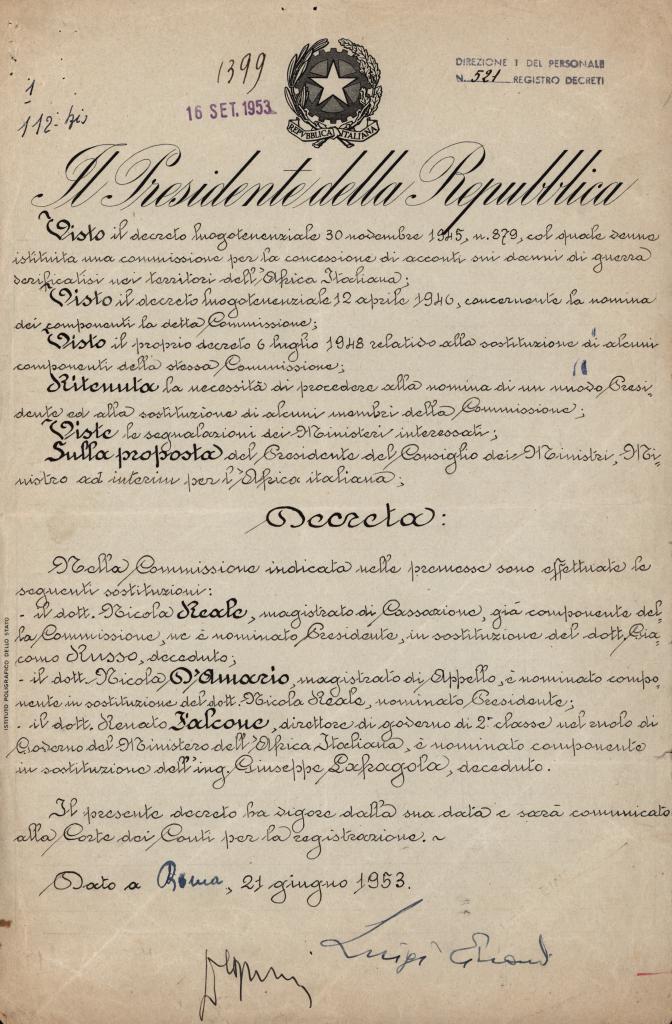 1399
DIREZIONE 1 DEL PERSONALE
N. 521 REGISTRO DECRETI
1
112-bis
16 SET. 1953
REPVBBLICA ITALIANA
Il Presidente della Repubblica
Visto il decreto luogotenenziale 30 novembre 1945, n. 879, col quale venne
istituita una commissione per la concessione di acconti sui danni di guerra
verificatisi nei territori dell'Africa Italiana;
Visto il decreto luogotenenziale 12 aprile 1946, concernente la nomina
dei componenti la detta Commissione;
Visto il proprio decreto 6 luglio 1948 relativo alla sostituzione di alcuni
componenti della stessa Commissione;
Ritenuta la necessità di procedere alla nomina di un nuovo Presi-
dente ed alla sostituzione di alcuni membri della Commissione;
Viste le segnalazioni dei Ministeri interessati;
Sulla proposta del Presidente del Consiglio dei Ministri, Mi-
nistro ad interim per l'Africa italiana;
Decreta:
Nella Commissione indicata nelle premesse sono effettuate le
seguenti sostituzioni:
- il dott. Nicola Reale, magistrato di Cassazione, già componente del-
la Commissione, ne è nominato Presidente, in sostituzione del dott. Gia-
como Russo, deceduto;
- il dott. Nicola D'Amario, magistrato di Appello, è nominato compo-
nente in sostituzione del dott. Nicola Reale, nominato Presidente;
- il dott. Renato Falcone, direttore di governo di 2ª classe nel ruolo di
Governo del Ministero dell'Africa Italiana, è nominato componente
in sostituzione dell'ing. Giuseppe Lafragola, deceduto.
Il presente decreto ha vigore dalla sua data e sarà comunicato
alla Corte dei Conti per la registrazione. ~
Dato a Roma, 21 giugno 1953.
Luigi Einaudi
ISTITUTO POLIGRAFICO DELLO STATO